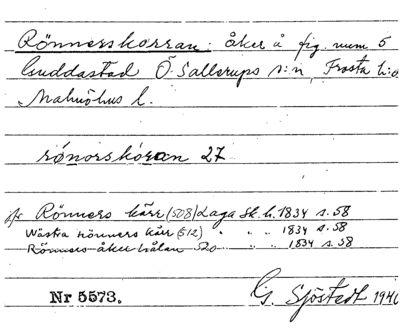 Rönnerskorran: åker å fig. num 5
Guddastad Ö. Sallerups s:n, Frosta h:d
Malmöhus l.
rónorskóran 27
jfr Rönners kärr (508) Laga sk. h. 1834 s. 58
Wästra rönners kärr (512) " " " 1834 s. 58
Rönners åker hålan 520 " " 1834 s. 58
Nr 5573.
G. Sjöstedt 1940